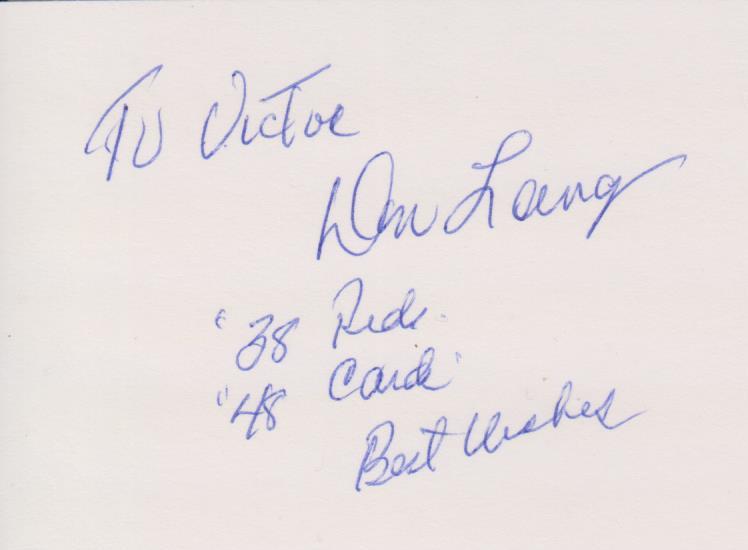 To Victor
Don Lang
'38 Reds
'48 Cards
Best Wishes